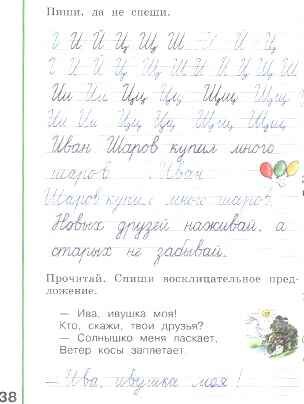 Пиши, да не спеши.
И Й Ц Щ Ш И Ц
И И Й Ц Щ Ш И Й Ц Щ Ш
Ии Ии Цц Цц Щщ Щщ
Ии Ии Цц Цц Щщ Щщ
Иван Шаров купил много
шаров. Иван
Шаров купил много шаров.
Новых друзей наживай, а
старых не забывай.
Прочитай. Спиши восклицательное пред-
ложение.
— Ива, ивушка моя!
Кто, скажи, твои друзья?
— Солнышко меня ласкает,
Ветер косы заплетает.
— Ива, ивушка моя!
38